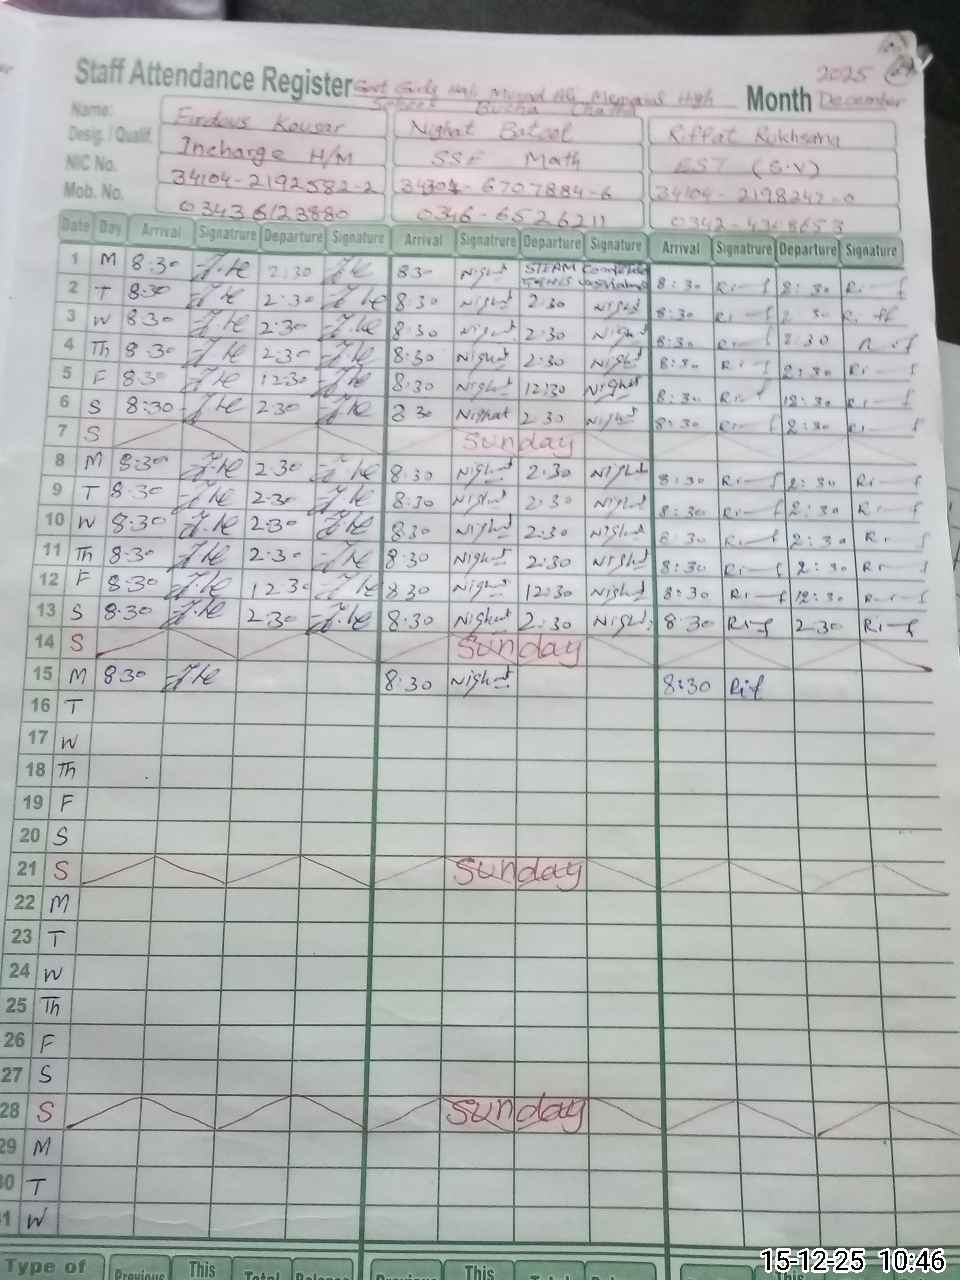 2025
Staff Attendance Register Govt Girls High Murad Ali Memorial High Month December
School Bucha Chatha
Name: Firdous Kousar Nighat Batool Riffat Rukhsana
Desig. / Qualif. Incharge H/M SSE Math EST (S.V)
NIC No. 34104-2192582-2 34304-6707884-6 34104-2198242-0
Mob. No. 03436123880 0346-6526211 0342-4368653
Date Day Arrival Signatrure Departure Signature Arrival Signatrure Departure Signature Arrival Signatrure Departure Signature
1 M 8:30 2:30 830 Nighat STEAM Computer 8:30 2:30
2 T 8:30 2:30 8:30 Nighat 2:30 Nighat 8:30 2:30
3 W 8:30 2:30 8:30 Nighat 2:30 Nighat 8:30 2:30
4 Th 8:30 2:30 8:30 Nighat 2:30 Nighat 8:30 2:30
5 F 8:30 12:30 8:30 Nighat 12:30 Nighat 8:30 12:30
6 S 8:30 2:30 8:30 Nighat 2:30 Nighat 8:30 2:30
7 S Sunday
8 M 8:30 2:30 8:30 Nighat 2:30 Nighat 8:30 2:30
9 T 8:30 2:30 8:30 Nighat 2:30 Nighat 8:30 2:30
10 W 8:30 2:30 8:30 Nighat 2:30 Nighat 8:30 2:30
11 Th 8:30 2:30 8:30 Nighat 2:30 Nighat 8:30 2:30
12 F 8:30 12:30 8:30 Nighat 12:30 Nighat 8:30 12:30
13 S 8:30 2:30 8:30 Nighat 2:30 Nighat 8:30 Rif 2:30
14 S Sunday
15 M 8:30 8:30 Nighat 8:30 Rif
16 T
17 W
18 Th
19 F
20 S
21 S Sunday
22 M
23 T
24 W
25 Th
26 F
27 S
28 S Sunday
29 M
30 T
31 W
Type of Previous This Total Balance Previous This
15-12-25 10:46